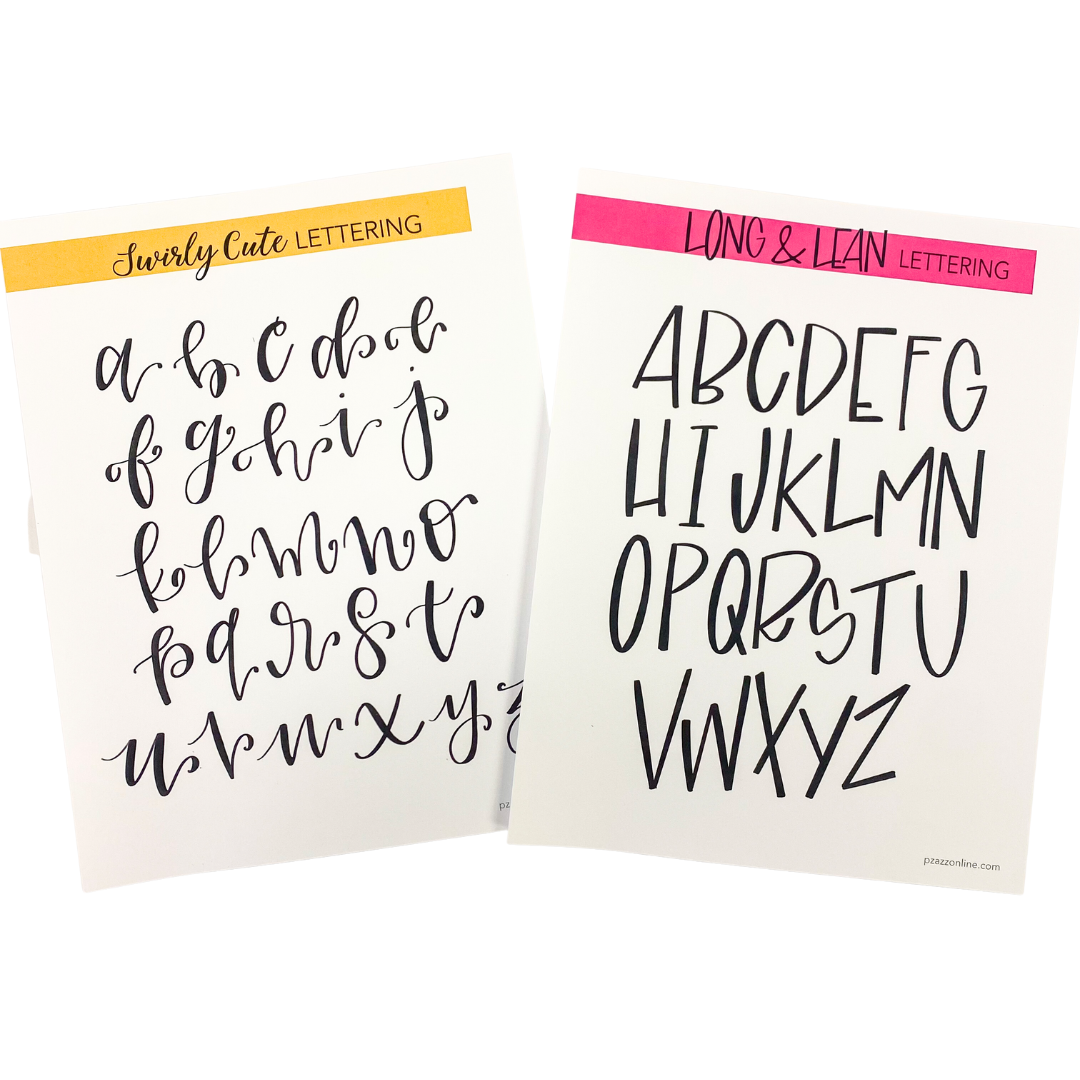 Swirly Cute LETTERING
a b c d e
f g h i j
k l m n o
p q r s t
u v w x y z
pz
LONG & LEAN LETTERING
ABCDEFG
HIJKLMN
OPQRSTU
VWXYZ
pzazzonline.com